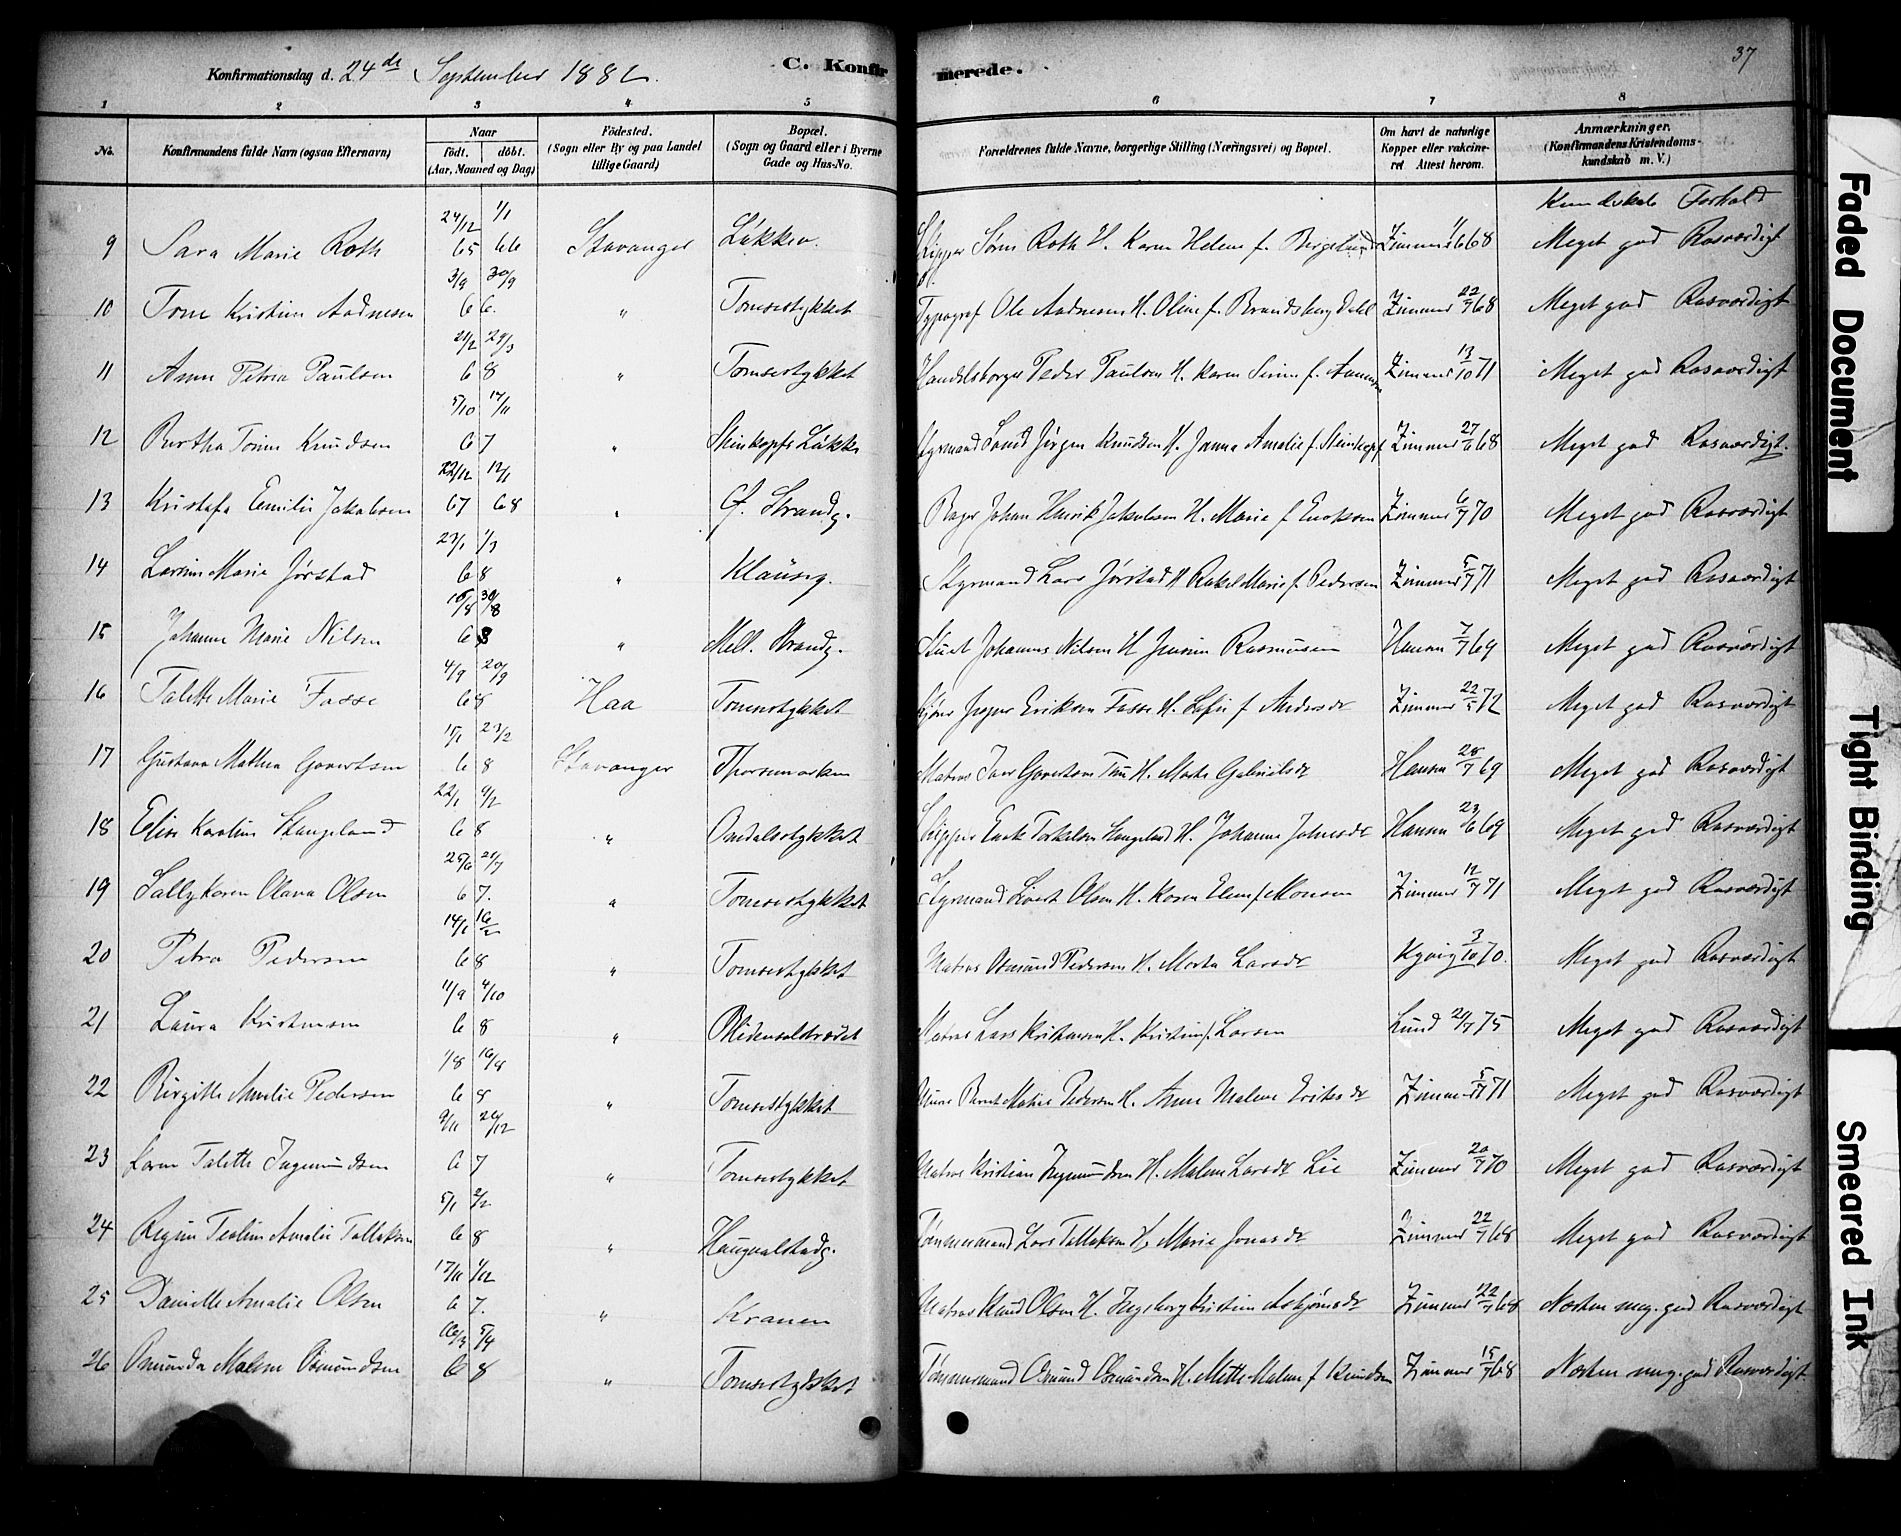 Konfirmationsdag d. 24de September 1882.
C. Konfirmerede.
37
1 2 3 4 5 6 7 8
No.
Konfirmandens fulde Navn (ogsaa Efternavn)
Naar
født. døbt.
(Aar, Maaned og Dag)
Fødested.
(Sogn eller By og paa Landet
tillige Gaard)
Bopæl.
(Sogn og Gaard eller i Byerne
Gade og Hus-No.
Forældrenes fulde Navne, borgerlige Stilling (Næringsvei) og Bopæl.
Om havt de naturlige
Kopper eller vaccine-
ret Attest herom.
Anmærkninger.
(Konfirmandens Kristendoms-
kundskab m. V.)
Kundskab Forhold
9 Sara Marie Roth 24/12 65 1/1 66 Stavanger Løkkev. Skipper Søren Roth H. Karen Helene f. Zimmer 68 Meget god Rosværdigt
10 Tone Kristine Aadnesen 3/9 30/9 66. " Tomsestykket Typograf Ole Aadnesen H. Oline f. Brandsberg Dahl Zimmer 22/7 68 Meget god Rosværdigt
11 Anne Petrea Paulsen 68 " Tomsestykket Handelsborger Peder Paulsen H. Karen Serine f. Zimmer 13/10 71 Meget god Rosværdigt
12 Bertha Tonine Knudsen 5/10 17/11 67 " Steinkopfs Løkke Styrmand Jørgen Knudsen H. Janna Amalie f. Steinkopf Zimmer 27/6 68 Meget god Rosværdigt.
13 Kristofa Emilie Jakobsen 22/12 67 12/1 68 " Ø. Strandg. Bager Johan Henrik Jakobsen H. Marie f. Zimmer 6/7 70 Meget god Rosværdigt
14 Marie Jørstad 23/1 1/3 68 " Klausg. Styrmand Lars Jørstad H Rakel Marie f. Pedersen Zimmer 5/7 71 Meget god Rosværdigt
15 Johanne Marie Nilsen 30/8 68 " Mell. Strandg. Johannes Nilsen H Rasmussen Hansen 7/7 69 Meget god Rosværdigt
16 Talette Marie Fosse 4/9 20/9 68 Haa Tomsestykket Eriksen Fosse H. Sofie f. Zimmer 22/5 72 Meget god Rosværdigt
17 Gustava Mathea Govertsen 15/1 23/2 68 Stavanger Matros Govertsen H. Marte Gabrielsdr Hansen 28/7 69 Meget god Rosværdigt
18 Elise Karoline Stangeland 22/1 9/2 68 " Skipper Torkelsen Stangeland H. Johanne Hansen 23/6 69 Meget god Rosværdigt
19 Sally Karen Olava Olsen 67. " Tomsestykket Styrmand Olsen H. Karen f. Monsen Zimmer 12/7 71 Meget god Rosværdigt
20 Petra Pedersen 14/1 16/2 68 " Tomsestykket Matros Osmund Pedersen H. Marta Larsdr 3/10 70. Meget god Rosværdigt
21 Laura Kristensen 11/9 4/10 68 " Matros Lars Kristensen H. Kristine f. Larsen Lund 20/7 75 Meget god Rosværdigt
22 Birgitte Amalie Pedersen 1/8 16/8 68 " Tomsestykket Bernt Matias Pedersen H. Anne Malene Eriksdr Zimmer 5/7 71 Meget god Rosværdigt
23 Talette Ingemundsen 9/11 26/12 67 " Tomsestykket Matros Kristian Ingemundsen H. Malene Larsdr Lie Zimmer 20/7 70 Meget god Rosværdigt
24 Regine Teoline Amalie Tollaksen 5/1 2/2 68 " Haugvaldstadg. Tømmermand Lars Tollaksen H. Marie Jonasdr Zimmer 22/7 68 Meget god Rosværdigt
25 Danielle Amalie Olsen 17/11 1/12 67. " Kranen Matros Knud Olsen H. Ingeborg Kristine Asbjørnsdr Zimmer 22/7 68 Næsten meg. god Rosværdigt
26 Osmunda Malene Osmundsen 5/4 68 " Tomsestykket Tømmermand Osmund Osmundsen H. Mette Malene f. Knudsen Zimmer 15/7 68 Næsten meg. god Rosværdigt
Faded Document
Tight Binding
Smeared Ink